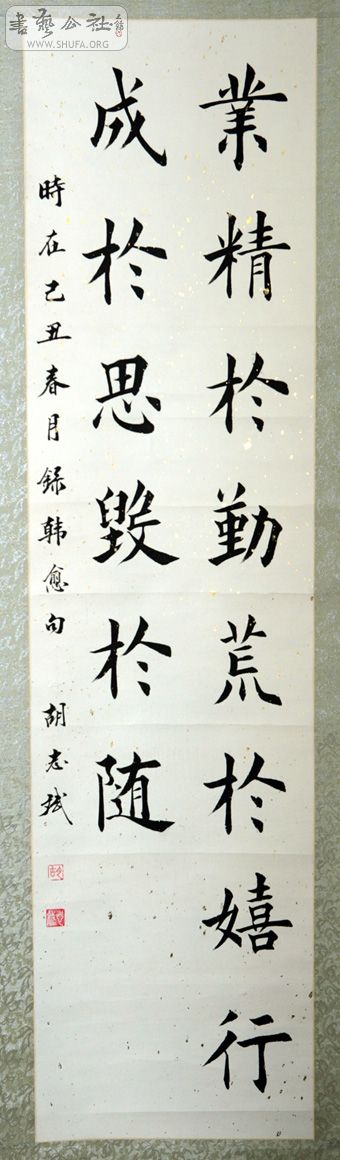 業精於勤荒於嬉行
成於思毀於随
時在己丑春月錄韩愈句 胡志斌
書藝公社
WWW.SHUFA.ORG